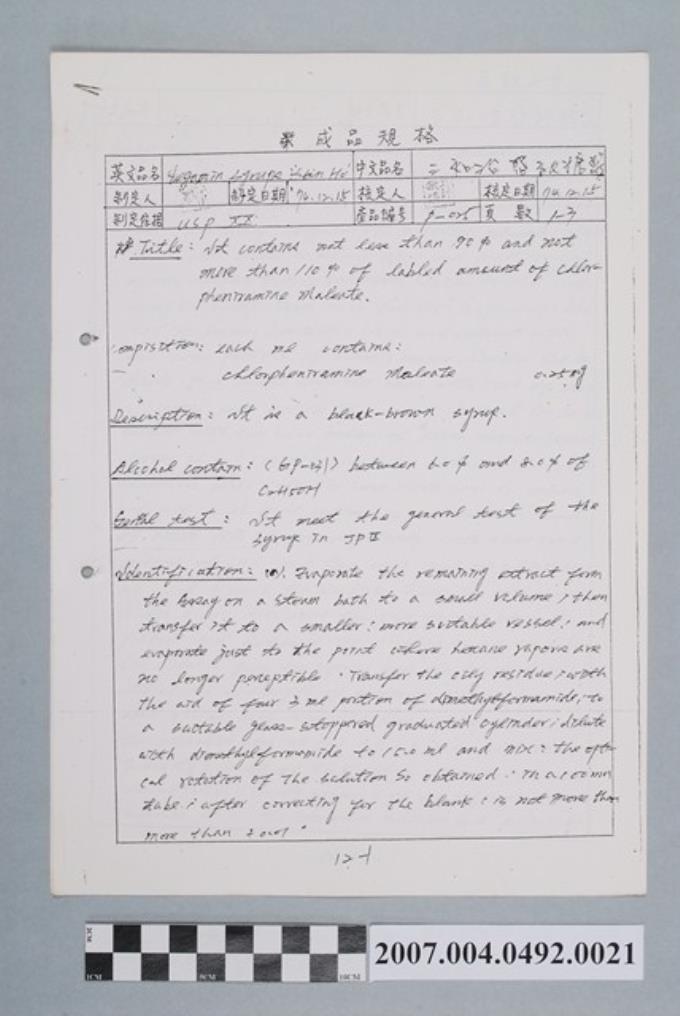 成品規格
英文品名 中文品名
制定人 制定日期 74.12.15 核定人 核定日期 74.12.15
制定依據 USP XX 產品編號 P-025 頁數 1-3
Title: It contains not less than 90% and not
more than 110% of labled amount of chlor-
pheniramine maleate.
ompisition: each ml contains:
chlorpheniramine maleate 0.25mg
Description: It is a black-brown syrup.
Alcohol contain: between and of
C2H5OH
test: It meet the general test of the
syrup in JP
Identification: Evaporate the remaining extract form
the Assay on a steam bath to a small volume, then
transfer it to a smaller: more suitable vessel: and
evaporate just to the point where hexane vapors are
no longer perceptible. Transfer the oily residue, with
the aid of four 3 ml portion of dimethylformamide, to
a suitable glass-stoppered graduated cylinder; dilute
with dimethylformamide to 15.0 ml and mix: the opti-
cal rotation of the solution so obtained. In a 100mm
tube: after correcting for the blank: is not more than
more than
12-1
2CM
1CM 5CM 10CM
2007.004.0492.0021